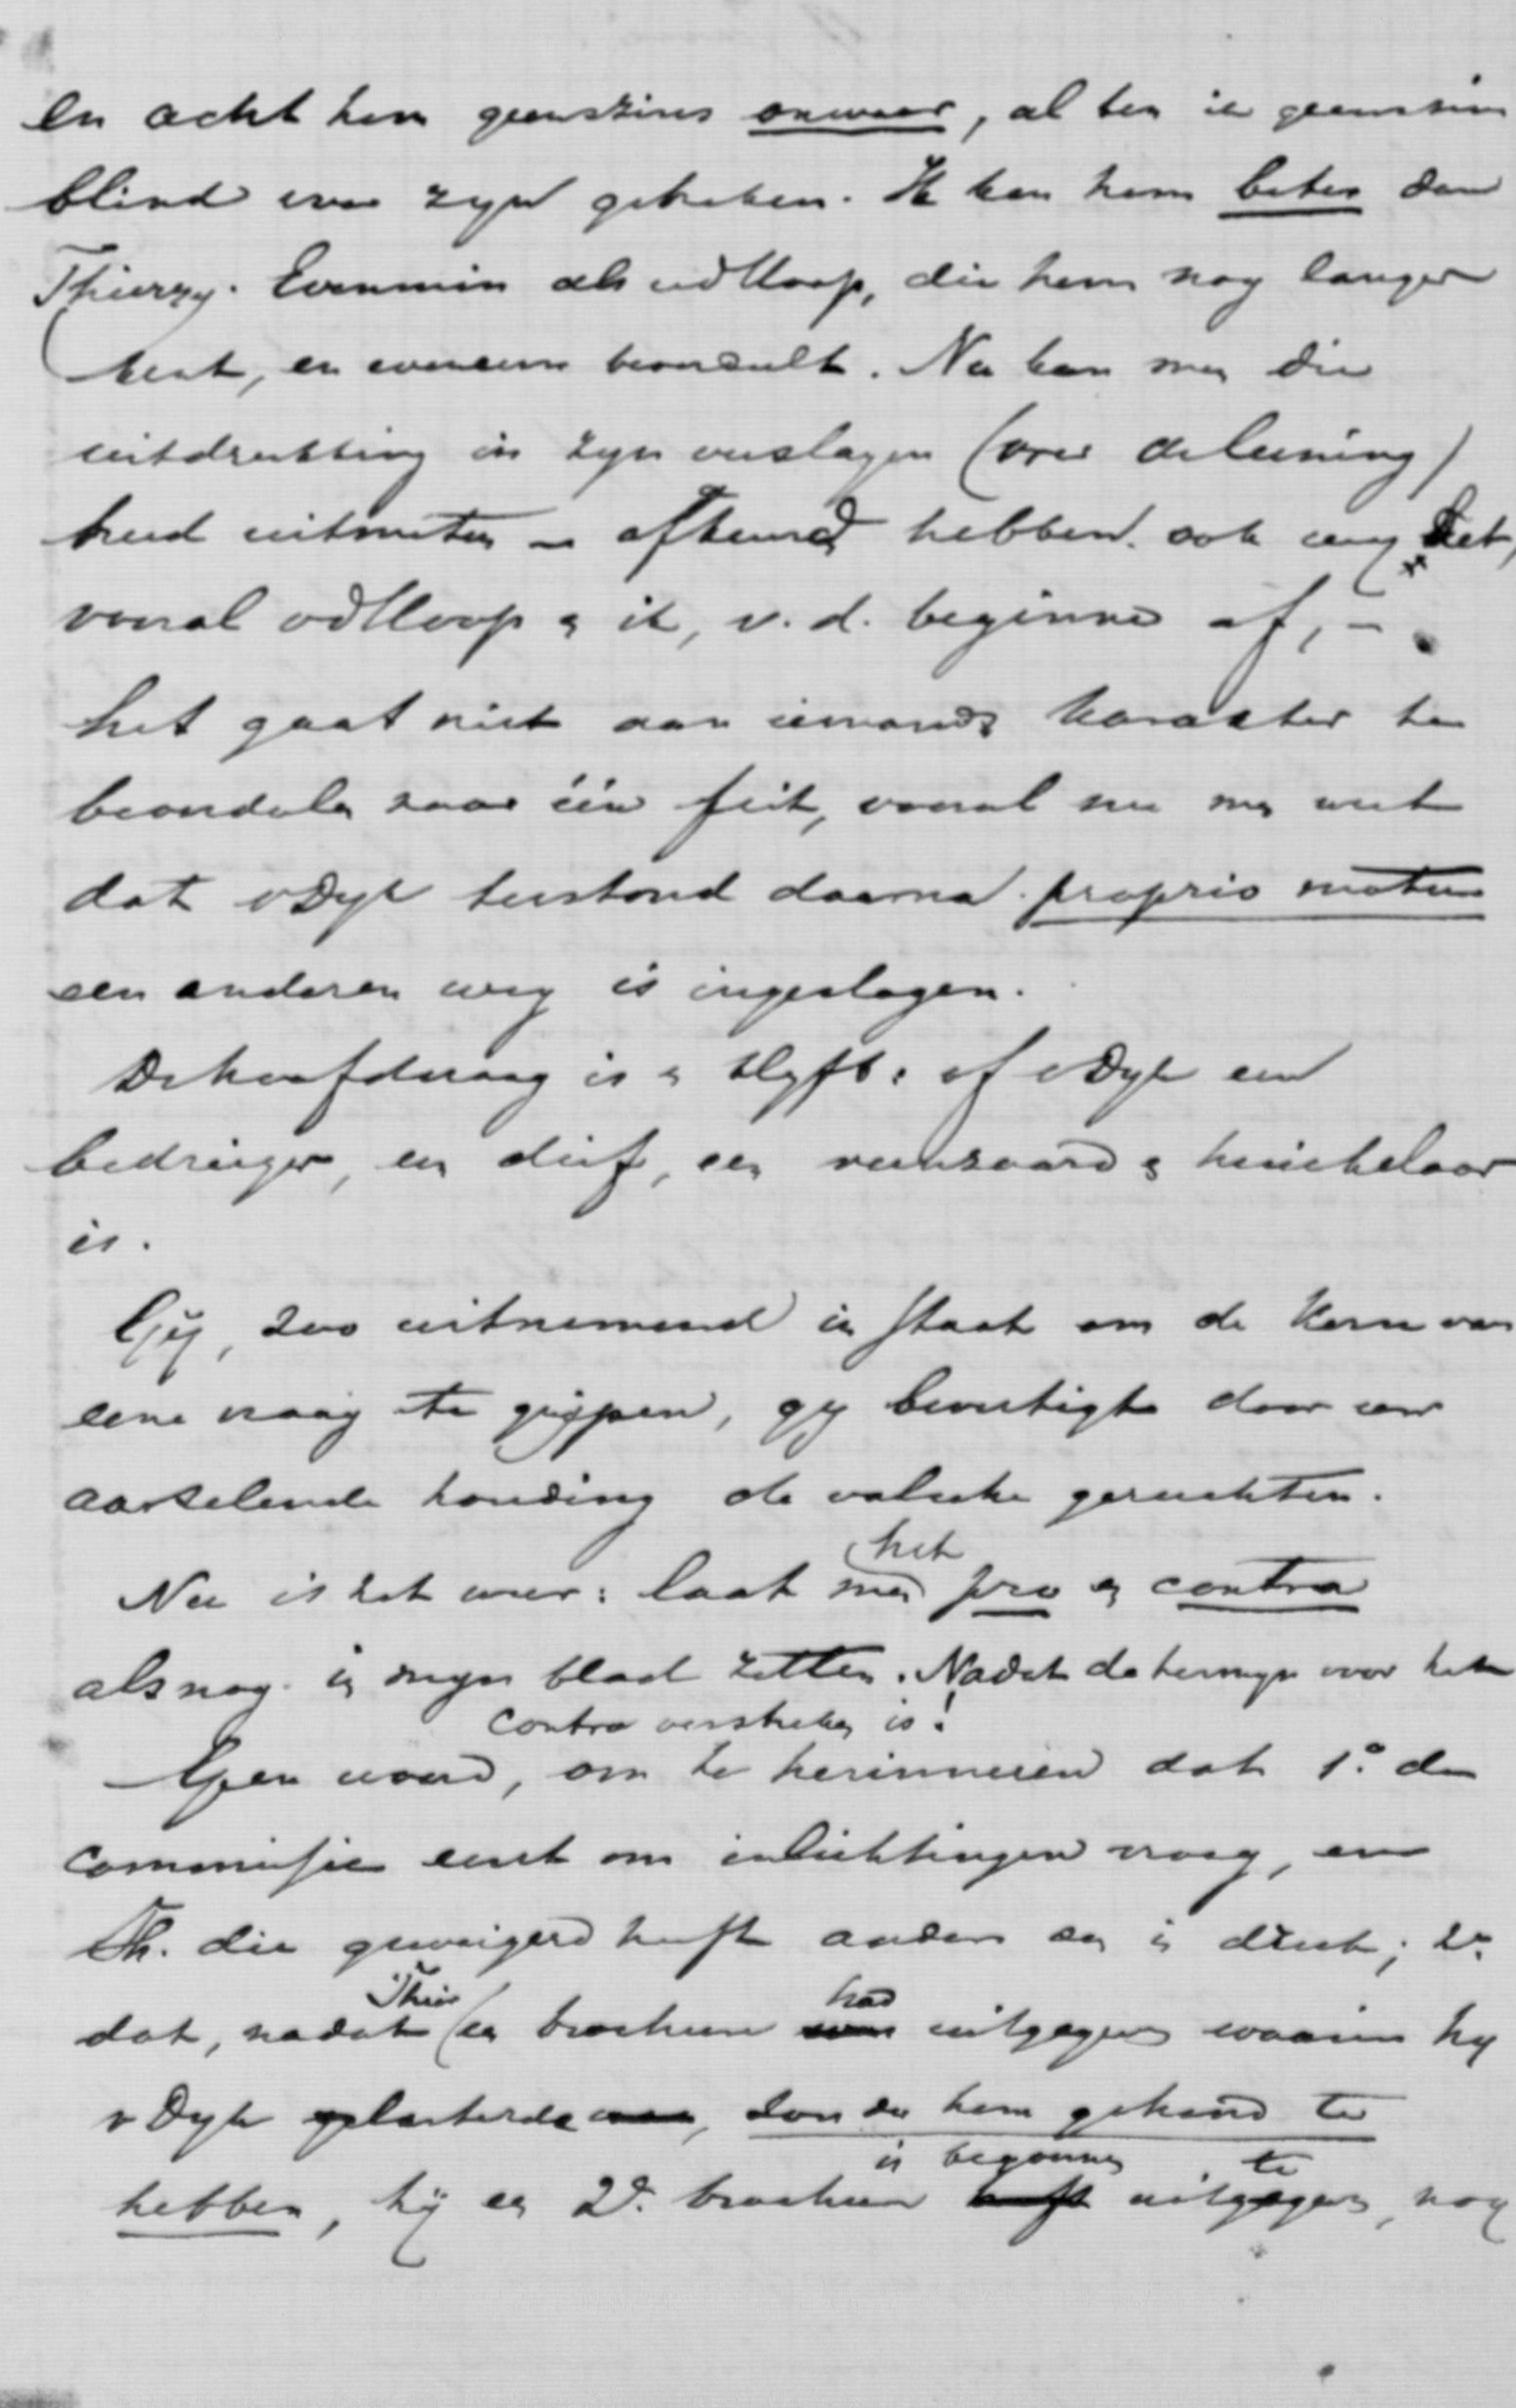 en acht hem geenszins onwaar, al ben ik geenszins
blind voor zyn gebreken. Ik ken hem beter dan
Thierry. Evenmin als vdHoop, die hem nog langer
kent, en eveneens beoordeelt. Nu kan men die
uitdrukking in zyn verslagen (over de leening)
breed uitmeten – afkeurd hebben ook wy het,
vooral vdHoop & ik, v. d. beginne af, –
het gaat niet aan iemands karakter te
beoordelen naar één feit, vooral nu men weet
dat vDyk terstond daarna proprio motu
een anderen weg is ingeslagen.
De hoofdvraag is & blyft: of vDyk een
bedrieger, een dief, een veinzaard & huichelaar
is.
Gij, zoo uitnemend in staat om de kern van
eene vraag te grijpen, gy bevestigt door uw
aarzelende houding de valsche geruchten.
Nu is het weer: laat men het pro en contra
alsnog in myn blad zetten. Nadat de termyn voor het
contra verstreken is!
Geen woord, om te herinneren dat 1o. de
commissie eerst om inlichtingen vroeg, en
Th. die geweigerd heeft anders dan in druk; 2o.
dat, nadat Thier een brochure had uitgegeven waarin hy
vDyk belasterde, zonder hem gekend te
hebben, hij een 2de. brochure is begonnen uit te geven, nog